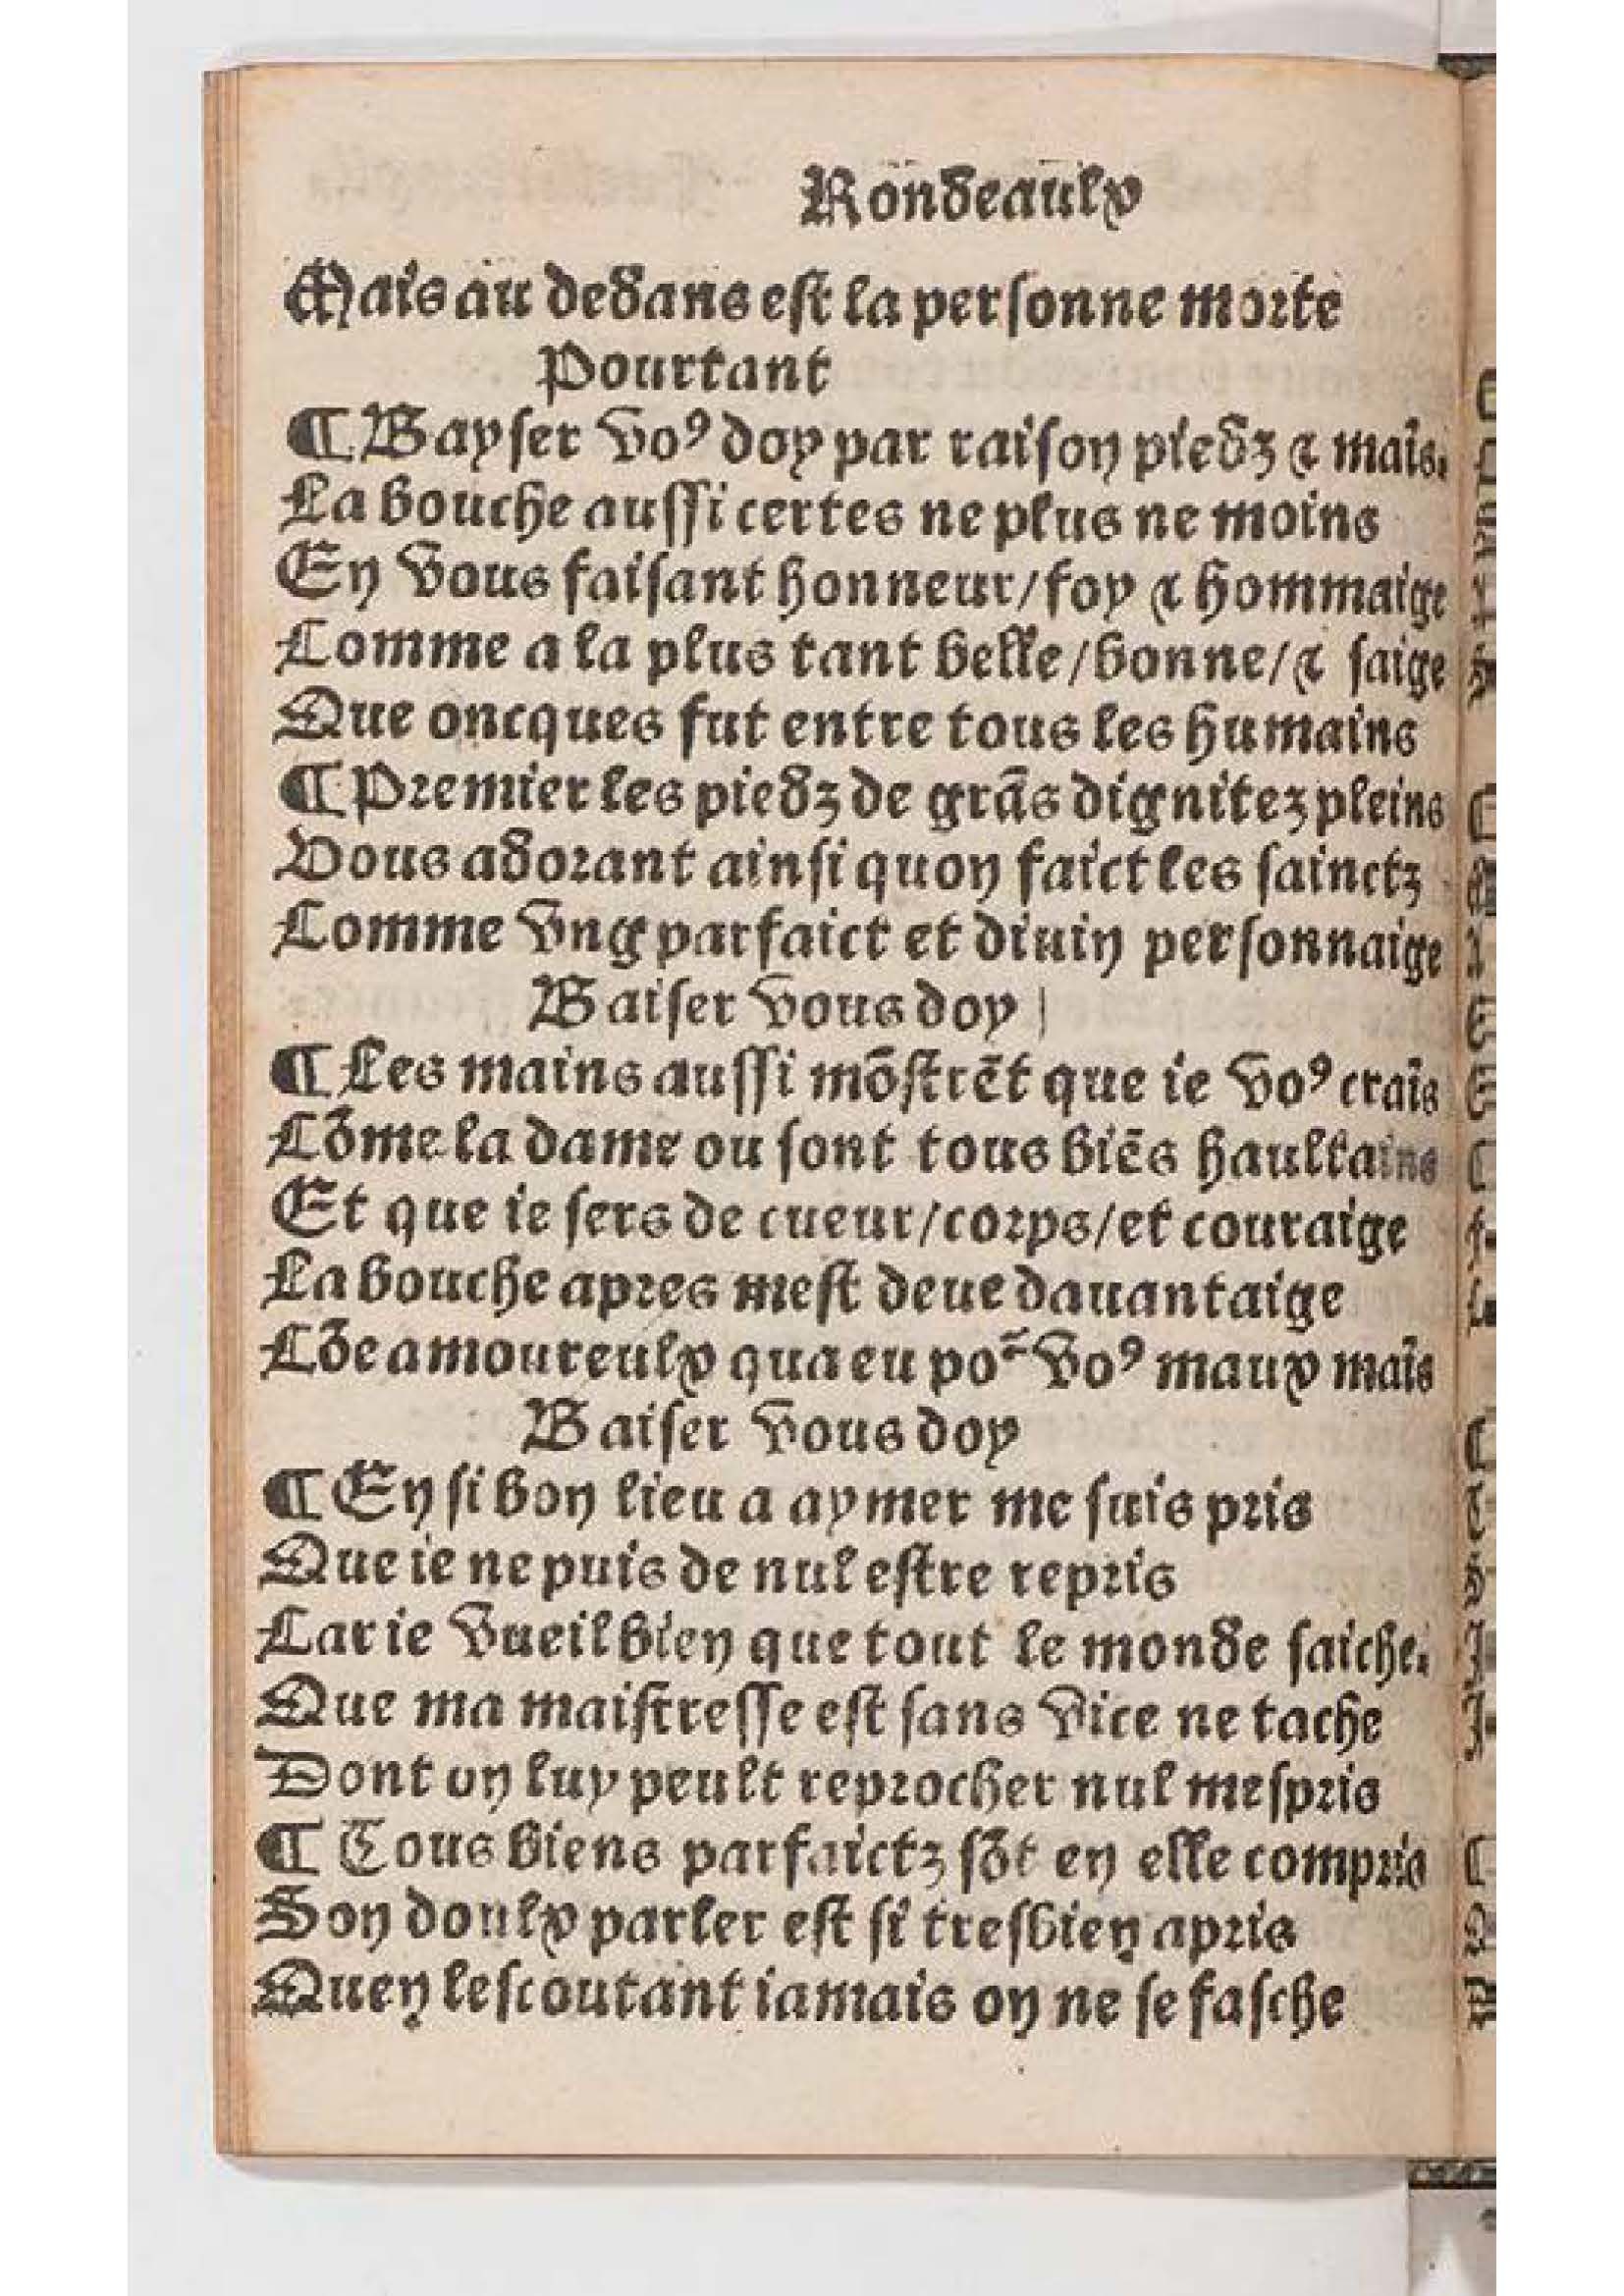 Rondeaulx
Mais au dedans est la personne morte
Pourtant
¶ Bayser voꝰ doy par raison piedz & maīs.
La bouche aussi certes ne plus ne moins
En vous faisant honneur/foy & hommaige
Comme a la plus tant belle/bonne/& saige
Que oncques fut entre tous les humains
¶ Premier les piedz de grās dignitez pleins
Vous adorant ainsi quon faict les sainctz
Comme vng parfaict et diuin personnaige
Baiser vous doy
¶ Les mains aussi mōstrēt que ie voꝰ craīs
Cōme la dame ou sont tous biēs haultains
Et que ie sers de cueur/corps/et couraige
La bouche apres mest deue dauantaige
Cōe amoureulx qua eu po᷑ voꝰ maux maīs
Baiser vous doy
¶ En si bon lieu a aymer me suis pris
Que ie ne puis de nul estre repris
Car ie vueil bien que tout le monde saiche.
Que ma maistresse est sans vice ne tache
Dont on luy peult reprocher nul mespris
¶ Tous biens parfaictz sōt en elle compris
Son doulx parler est si tresbien apris
Quen lescoutant iamais on ne se fasche